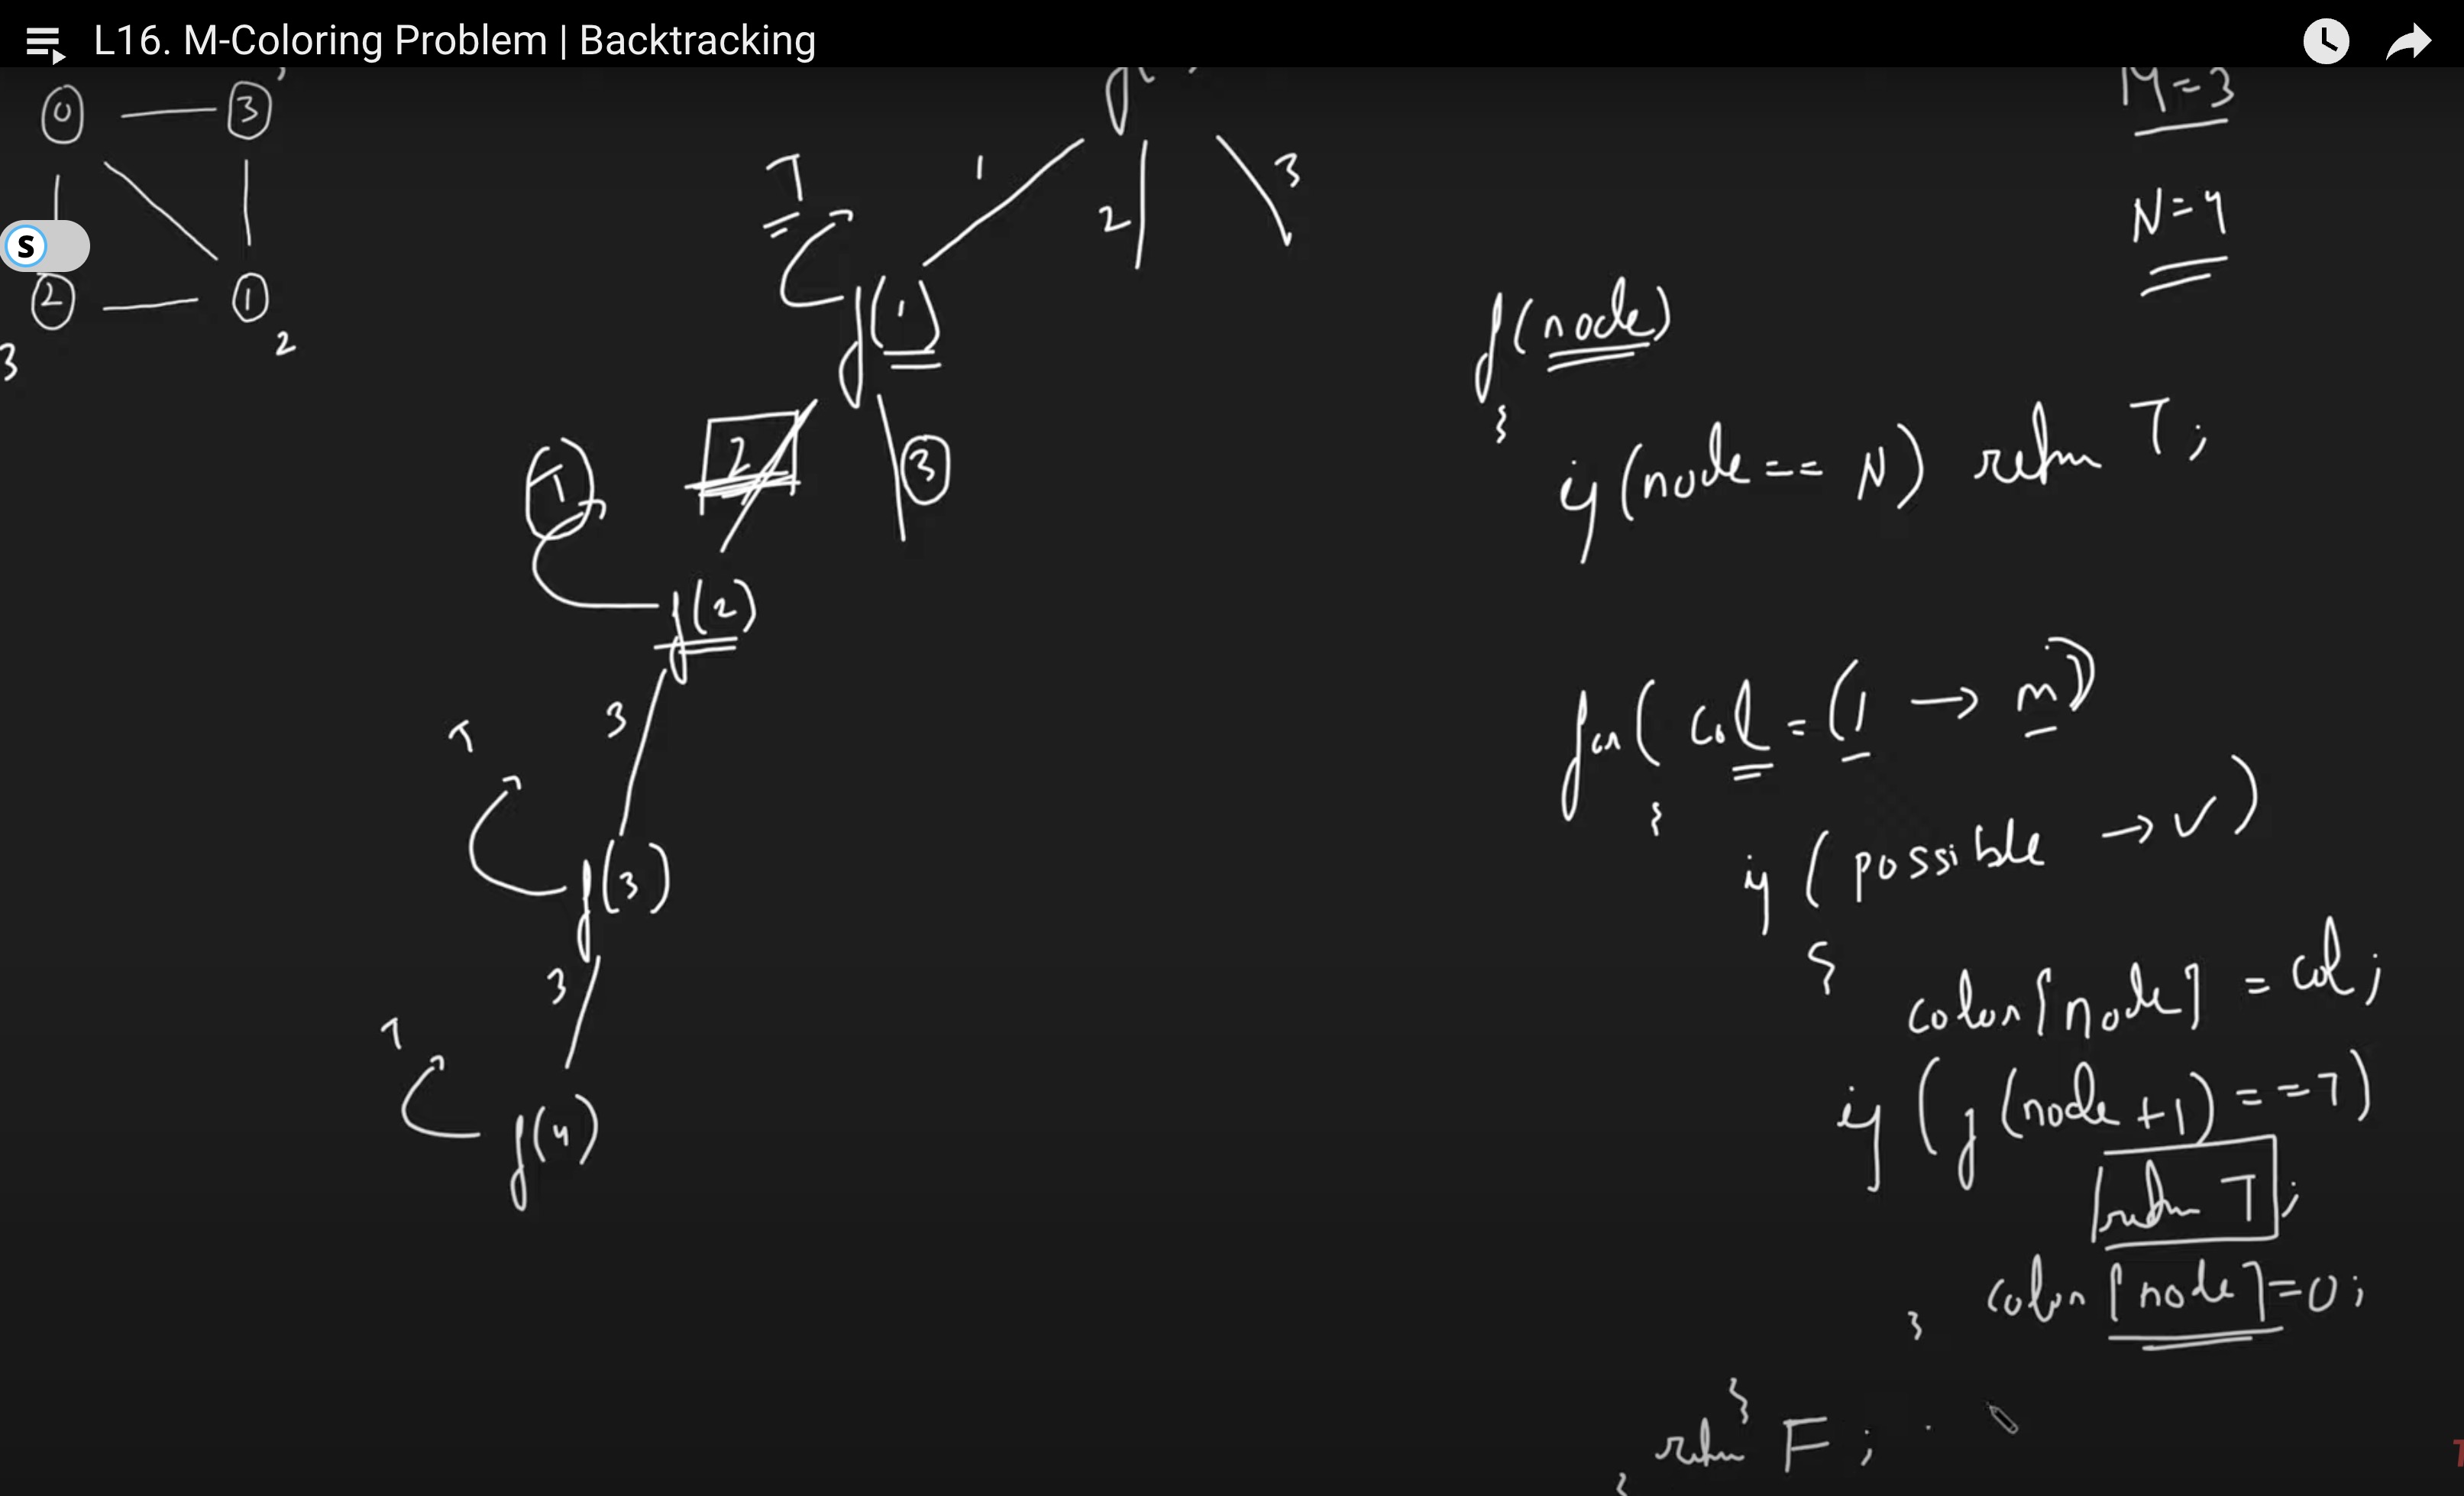 L16. M-Coloring Problem | Backtracking
0 3
2 1
3 2
S
M=3
N=4
1 2 3
T
f(1)
2 3
T
f(2)
3
T
f(3)
3
T
f(4)
f(node)
{
if(node == N) return T;
for( col = (1 → m))
{
if (possible → ✓)
{
color[node] = col;
if (f(node+1) == T)
return T;
color[node]=0;
}
}
return F;
}